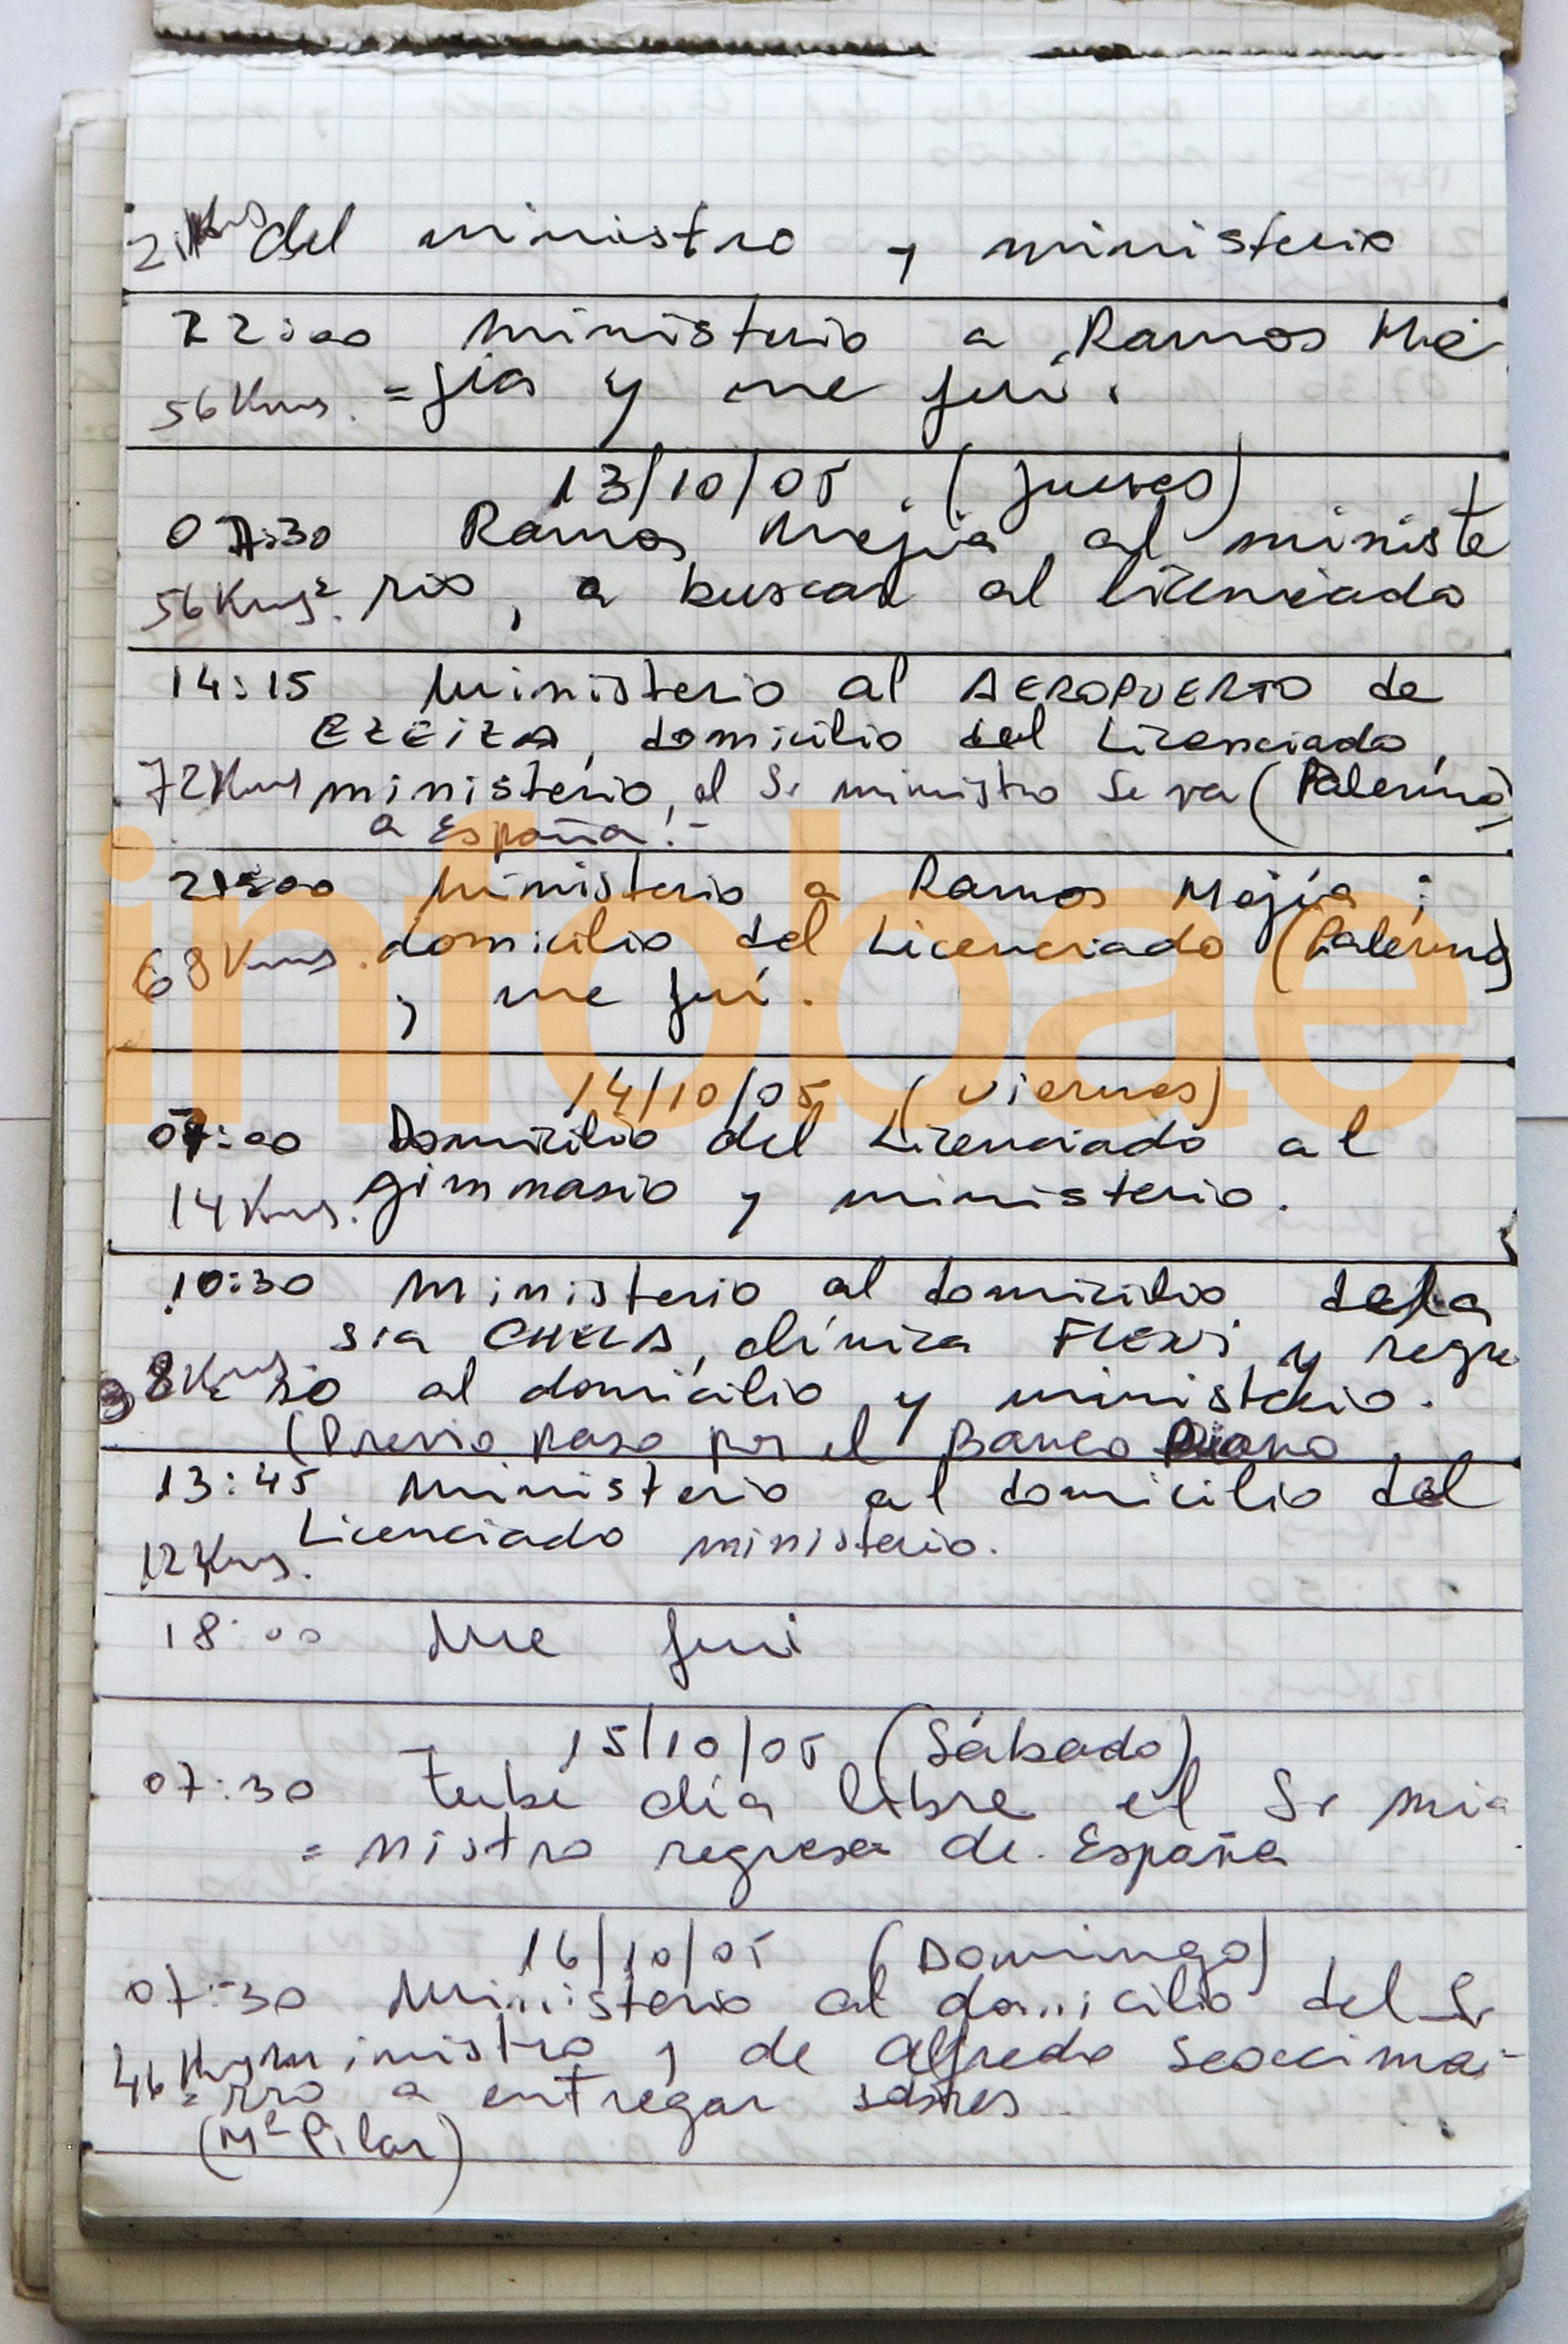 del ministro y ministerio
22:00 Ministerio a Ramos Me
56 Kms. = jia y me fui.
13/10/05. (jueves)
07:30 Ramos Mejia, al ministe
56 Kms. rio, a buscar al licenciado
14:15 Ministerio al AEROPUERTO de
EZEIZA, domicilio del Licenciado,
72 Kms ministerio, el Sr ministro se va (Palermo)
a España.-
21:00 Ministerio a Ramos Mejía;
68 Kms. domicilio del Licenciado (Palermo)
y me fuí.
14/10/05 (Viernes)
07:00 Domicilio del Licenciado al
14 Kms. gimnasio y ministerio.
10:30 Ministerio al domicilio dela
sra CHELA, clínica FLENI, y regre
38 Kms. so al domicilio y ministerio.
(Previo paso por el Banco
13:45 Ministerio al domicilio del
Licenciado ministerio.
12 Kms.
18:00 Me fui
15/10/05 (Sábado)
07:30 Tube día libre el Sr mi
= nistro regresa de España
16/10/05 (Domingo)
07:30 Ministerio al domicilio del Sr
46 Kms ministro y de Alfredo
= rro a entregar sobres
(Me Pilar)
infobae